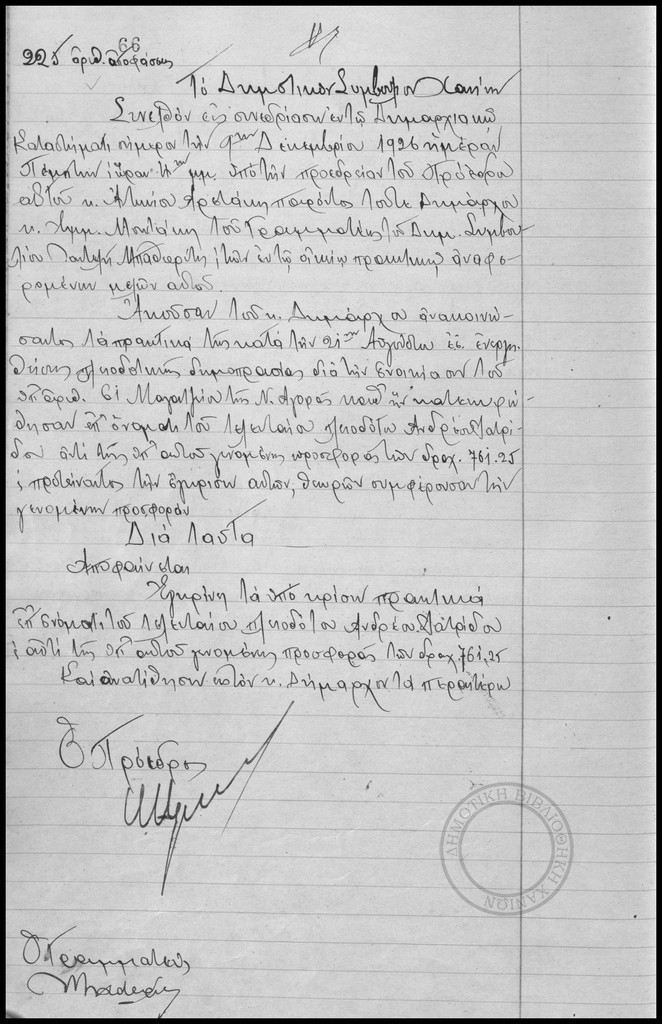 66
225 ἀριθ. ἀποφάσεως
Τό Δημοτικόν Συμβούλιον Χανίων
Συνελθόν εἰς συνεδρίασιν ἐν τῷ Δημαρχιακῷ
Καταστήματι σήμερον τήν 9ην Δεκεμβρίου 1926 ἡμέραν
Πέμπτην ὥραν μμ. ὑπό τήν προεδρείαν τοῦ Προέδρου
αὐτοῦ κ. παρόντος τοῦ τε Δημάρχου
κ. Ἐμμ. Μουντάκη τοῦ Γραμματέως τοῦ Δημ. Συμβου-
λίου Παντελῆ καί τῶν ἐν τῷ οἰκείῳ πρακτικῷ ἀναφε-
ρομένων μελῶν αὐτοῦ.
Ἀκοῦσαν τοῦ κ. Δημάρχου ἀνακοινώ-
σαντος τά πρακτικά τῆς κατά τήν 21ην Αὐγούστου ἐ.ἔ. ἐνεργη-
θείσης πλειοδοτικῆς δημοπρασίας διά τήν ἐνοικίασιν τοῦ
ὑπ' ἀριθ. 61 Μαγαζείου τῆς Ν. Ἀγορᾶς καθ' ἥν κατεκυρώ-
θησαν ἐπ' ὀνόματι τοῦ τελευταίου πλειοδότου Ἀνδρέου Πατρί-
δου ἀντί τῆς ὑπ' αὐτοῦ γενομένης προσφορᾶς τῶν δραχ. 761.25
καί προτείναντος τήν ἔγκρισιν αὐτῶν, θεωρῶν συμφέρουσαν τήν
γενομένην προσφοράν
Διά ταῦτα
Ἀποφαίνεται
Ἐγκρίνει τά ὑπό κρίσιν πρακτικά
ἐπ' ὀνόματι τοῦ τελευταίου πλειοδότου Ἀνδρέου Πατρίδου
καί ἀντί τῆς ὑπ' αὐτοῦ γενομένης προσφορᾶς τῶν δραχ. 761,25
Καί ἀνατίθησιν εἰς τόν κ. Δήμαρχον τά περαιτέρω
Ὁ Πρόεδρος
ΔΗΜΟΤΙΚΗ ΒΙΒΛΙΟΘΗΚΗ ΧΑΝΙΩΝ
Ὁ Γραμματεύς